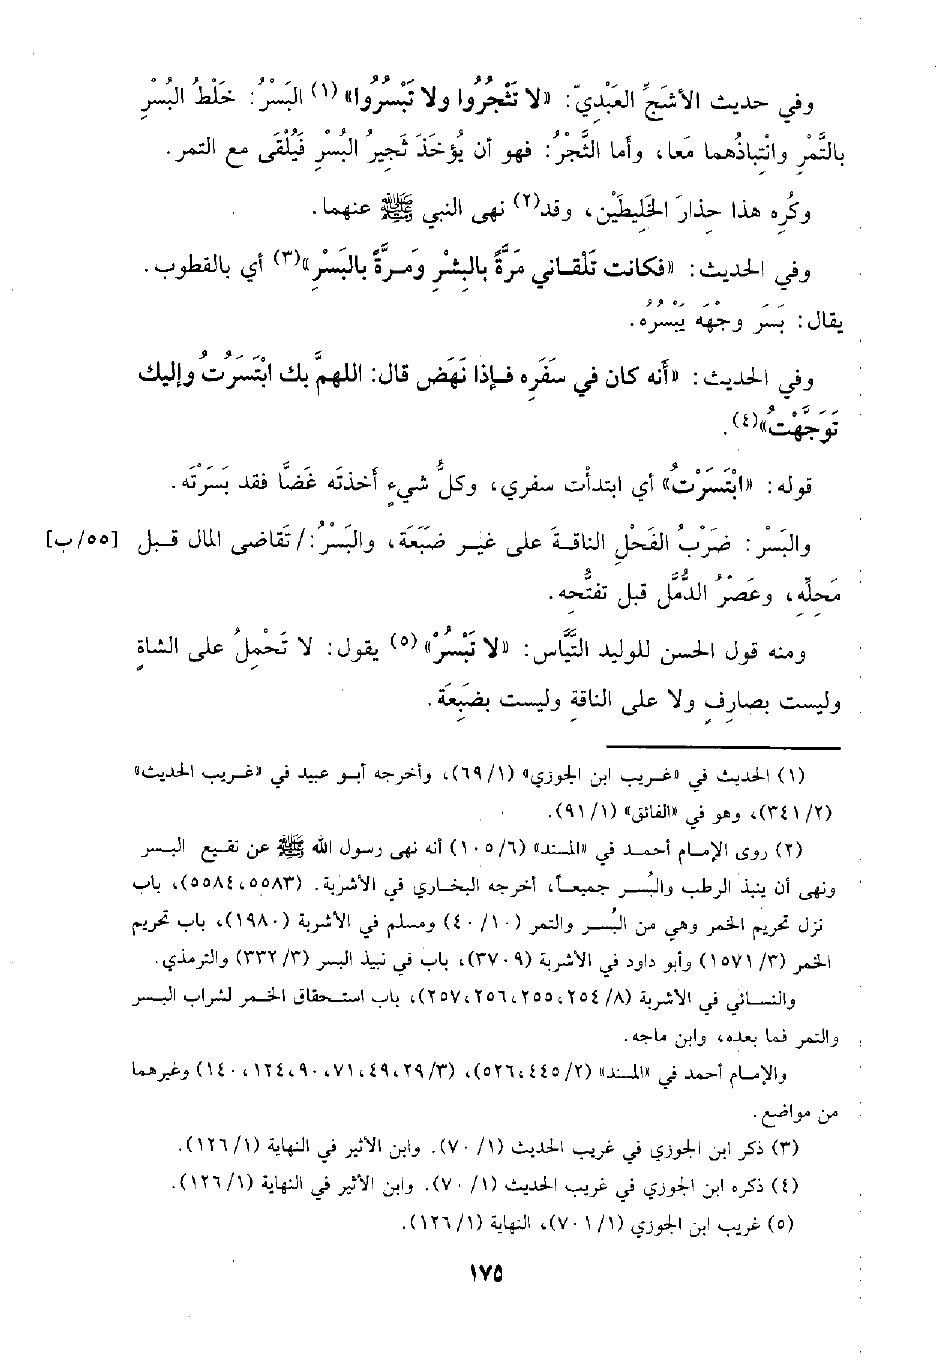 وفي حديث الأشَجِّ العَبْديّ: «لا تَثْجُرُوا ولا تَبْسُروا»(١) البَسْرُ: خَلْطُ البُسْرِ
بالتَّمْرِ وانْتِباذُهما مَعا، وأما الثَّجْرُ: فهو أن يُؤخَذَ ثَجِيرُ البُسْرِ فَيُلْقَى مع التمر.
وكُرِه هذا حِذارَ الخَلِيطَيْن، وقد(٢) نهى النبي ﷺ عنهما.
وفي الحديث: «فكانت تَلْقاني مَرَّةً بالبِشْرِ ومَرَّةً بالبَسْرِ»(٣) أي بالقطوب.
يقال: بَسَر وجْهَه يَبْسُرُه.
وفي الحديث: «أنه كان في سَفَرِه فإذا نَهَض قال: اللهمَّ بك ابْتَسَرْتُ وإليك
تَوَجَّهْتُ»(٤).
قوله: «ابْتَسَرْتُ» أي ابتدأت سفري، وكلُّ شيءٍ أخذتَه غَضًّا فقد بَسَرْتَه.
والبَسْر: ضَرْبُ الفَحْلِ الناقةَ على غير ضَبَعَة، والبَسْرُ:/ تَقاضى المال قبل [٥٥/ب]
مَحِلِّه، وعَصْرُ الدُّمَّل قبل تفتُّحِه.
ومنه قول الحسن للوليد التَّيَّاس: «لا تَبْسُرْ»(٥) يقول: لا تَحْمِلُ على الشاةِ
وليست بصارِفٍ ولا على الناقةِ وليست بضَبِعَة.
(١) الحديث في «غريب ابن الجوزي» (٦٩/١)، وأخرجه أبو عبيد في «غريب الحديث»
(٣٤١/٢)، وهو في «الفائق» (٩١/١).
(٢) روى الإمام أحمد في «المسند» (١٠٥/٦) أنه نهى رسول الله ﷺ عن نقيع البسر
ونهى أن ينبذ الرطب والبُسر جميعاً، أخرجه البخاري في الأشربة. (٥٥٨٣، ٥٥٨٤)، باب
نزل تحريم الخمر وهي من البُسر والتمر (٤٠/١٠) ومسلم في الأشربة (١٩٨٠)، باب تحريم
الخمر (١٥٧١/٣) وأبو داود في الأشربة (٣٧٠٩)، باب في نبيذ البسر (٣٣٢/٣) والترمذي.
والنسائي في الأشربة (٢٥٤/٨، ٢٥٥، ٢٥٦، ٢٥٧)، باب استحقاق الخمر لشراب البسر
والتمر فما بعده، وابن ماجه.
والإمام أحمد في «المسند» (٤٤٥/٢، ٥٢٦)، (٢٩/٣، ٤٩، ٧١، ٩٠، ١٢٤، ١٤٠) وغيرهما
من مواضع.
(٣) ذكر ابن الجوزي في غريب الحديث (٧٠/١). وابن الأثير في النهاية (١٢٦/١).
(٤) ذكره ابن الجوزي في غريب الحديث (٧٠/١). وابن الأثير في النهاية (١٢٦/١).
(٥) غريب ابن الجوزي (٧٠١/١)، النهاية (١٢٦/١).
١٧٥